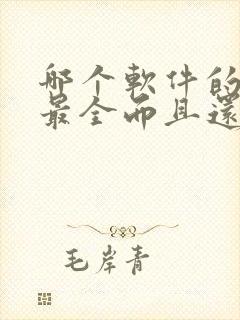 哪个軟件的
最全而且還
毛岸青